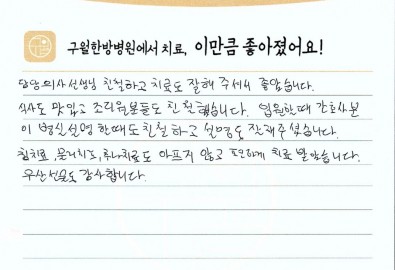 구월한방병원에서 치료, 이만큼 좋아졌어요!
담당의사선생님 친절하고 치료도 잘해 주셔서 좋았습니다.
식사도 맛있고 조리원분들도 친절했습니다. 입원할때 간호사분
이 병실설명 할때도 친절하고 설명도 잘해주셨습니다.
침치료, 물리치료, 추나치료도 아프지 않고 편하게 치료 받았습니다.
우산선물도 감사합니다.